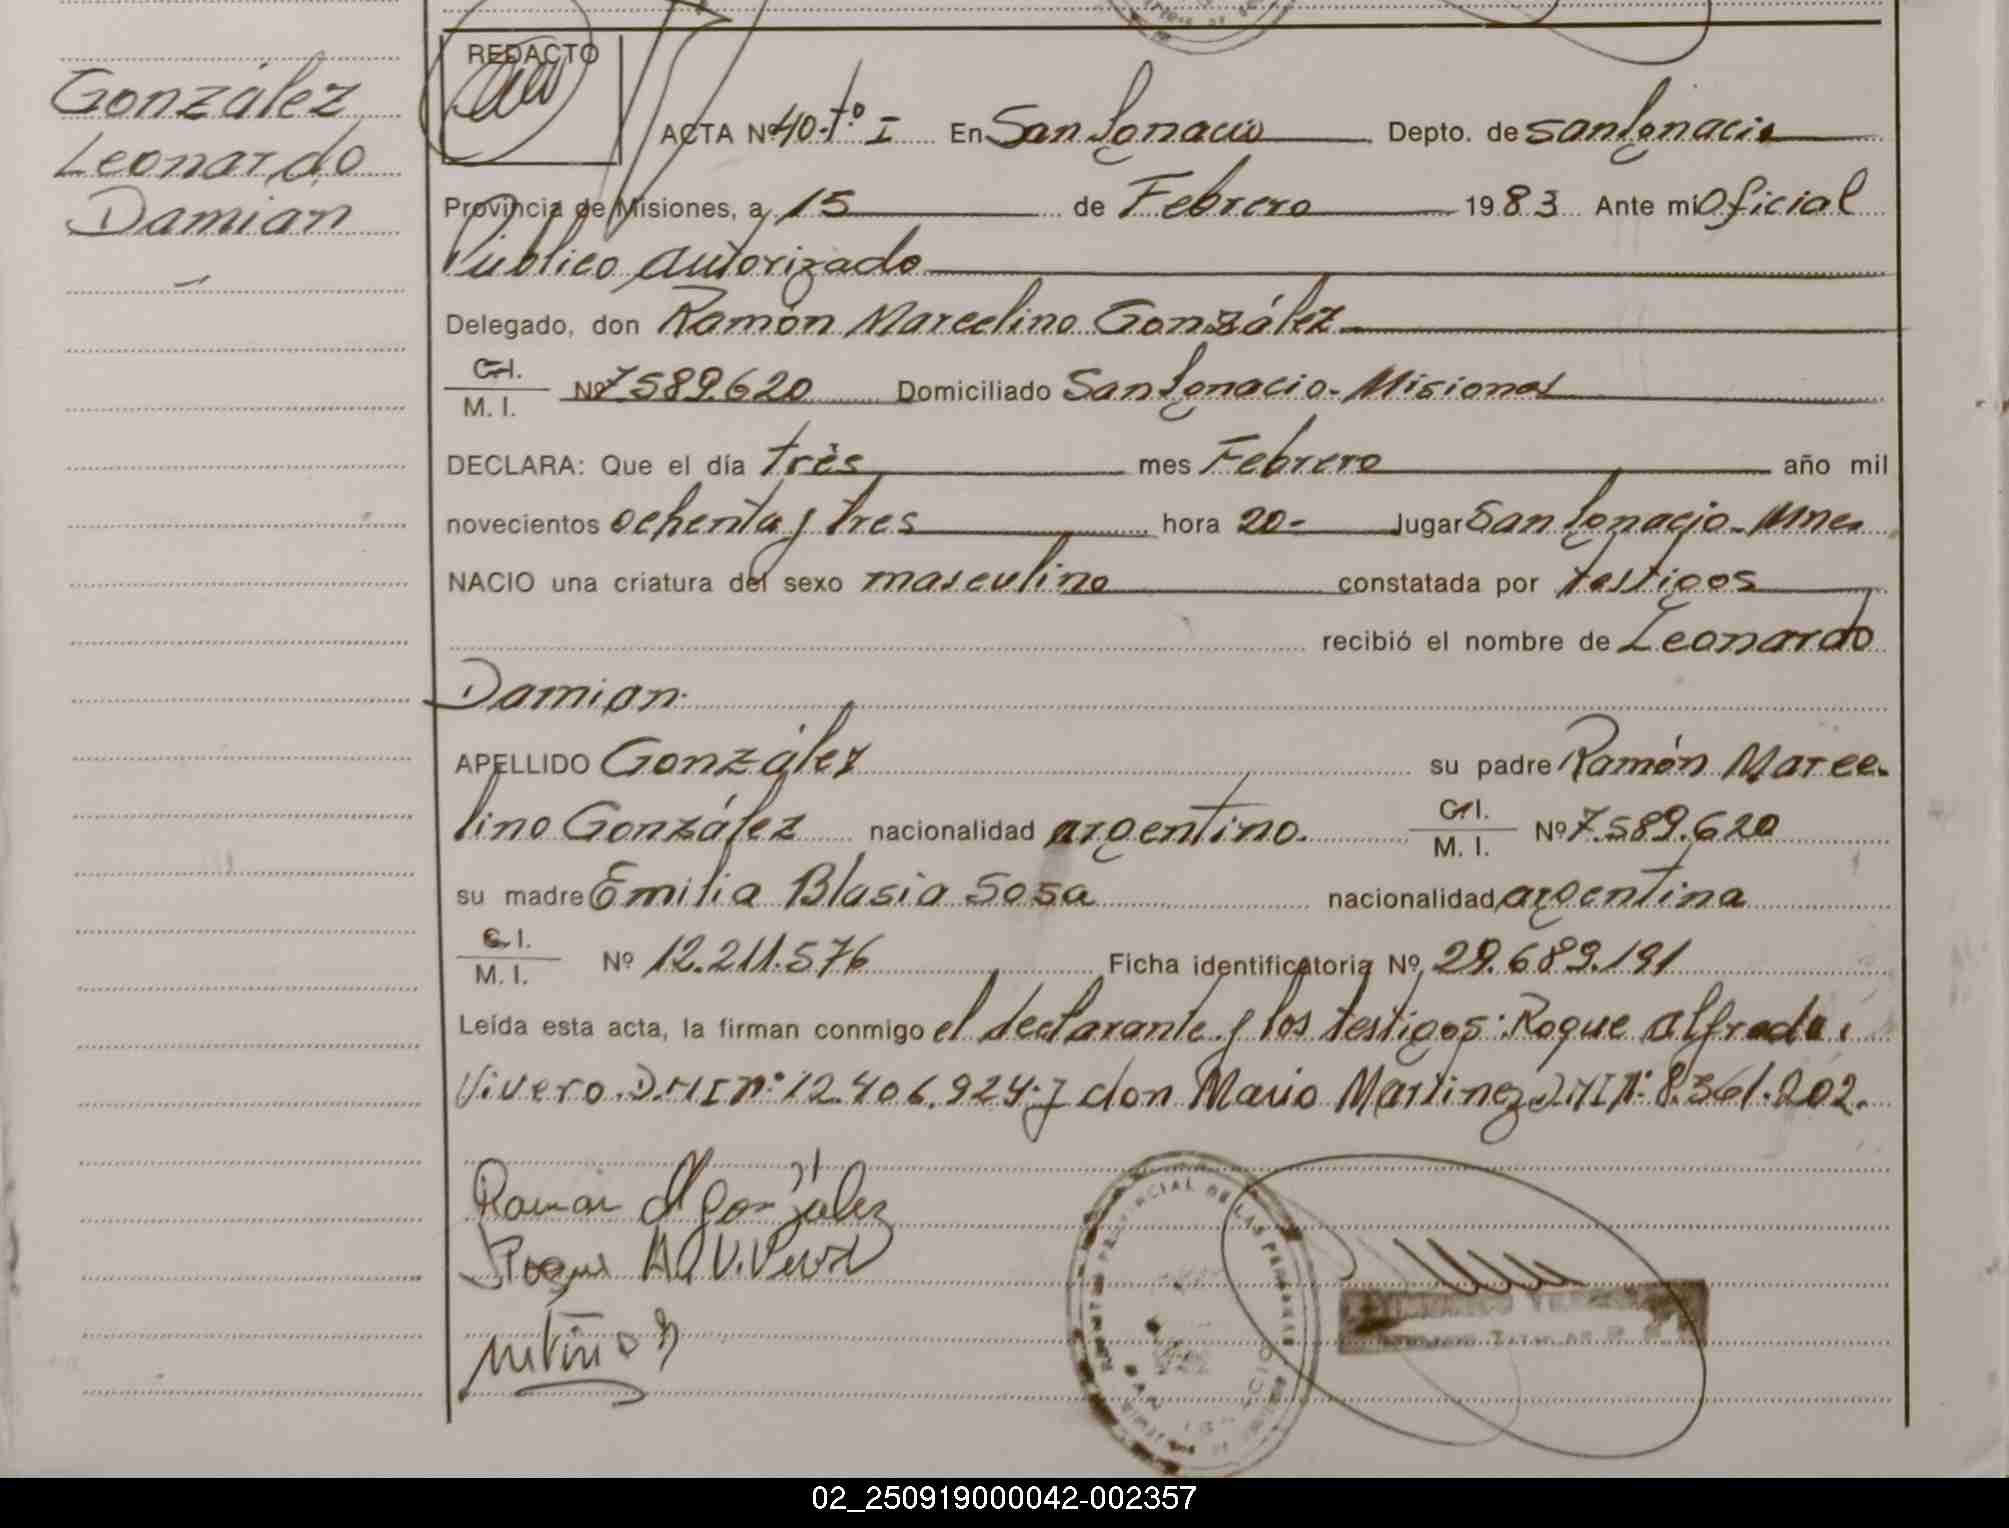 González
Leonardo
Damian
REDACTO
ACTA Nº 40-Tº I En San Ignacio Depto. de San Ignacio
Provincia de Misiones, a 15 de Febrero 1983 Ante mi Oficial
Público autorizado
Delegado, don Ramón Marcelino González
C.I.
M. I. Nº 7.589.620 Domiciliado San Ignacio - Misiones
DECLARA: Que el día tres mes Febrero año mil
novecientos ochenta y tres hora 20- lugar San Ignacio - Mnes
NACIO una criatura del sexo masculino constatada por testigos
recibió el nombre de Leonardo
Damian
APELLIDO González su padre Ramón Marce-
lino González nacionalidad argentino. C.I.
M. I. Nº 7.589.620
su madre Emilia Blasia Sosa nacionalidad argentina
C.I.
M. I. Nº 12.211.576 Ficha identificatoria Nº 29.689.191
Leída esta acta, la firman conmigo el declarante y los testigos: Roque alfredo
Vivero. D.M.I nº 12.406.924 y don Mario Martinez D.M.I Nº 8.361.202.
Ramon M González
Roque A. Vivero
02_250919000042-002357